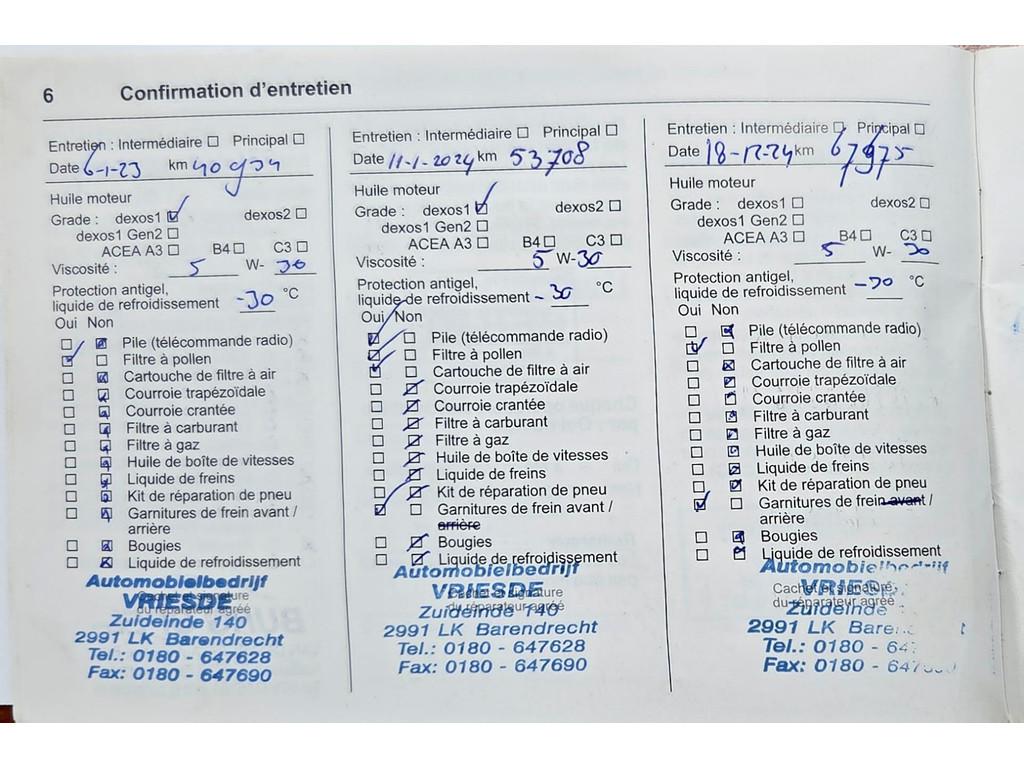 6 Confirmation d'entretien
Entretien : Intermédiaire Principal
Date 6-1-23 km
Huile moteur
Grade : dexos1 dexos2
dexos1 Gen2
ACEA A3 B4 C3
Viscosité : 5 W- 30
Protection antigel,
liquide de refroidissement -30 °C
Oui Non
Pile (télécommande radio)
Filtre à pollen
Cartouche de filtre à air
Courroie trapézoïdale
Courroie crantée
Filtre à carburant
Filtre à gaz
Huile de boîte de vitesses
Liquide de freins
Kit de réparation de pneu
Garnitures de frein avant /
arrière
Bougies
Liquide de refroidissement
Automobielbedrijf
Cachet et signature
VRIESDE
du réparateur agréé
Zuideinde 140
2991 LK Barendrecht
Tel.: 0180 - 647628
Fax: 0180 - 647690
Entretien : Intermédiaire Principal
Date 11-1-2024 km 53708
Huile moteur
Grade : dexos1 dexos2
dexos1 Gen2
ACEA A3 B4 C3
Viscosité : 5 W-30
Protection antigel,
liquide de refroidissement - 30 °C
Oui Non
Pile (télécommande radio)
Filtre à pollen
Cartouche de filtre à air
Courroie trapézoïdale
Courroie crantée
Filtre à carburant
Filtre à gaz
Huile de boîte de vitesses
Liquide de freins
Kit de réparation de pneu
Garnitures de frein avant /
arrière
Bougies
Liquide de refroidissement
Automobielbedrijf
Cachet et signature
VRIESDE
du réparateur agréé
Zuideinde 140
2991 LK Barendrecht
Tel.: 0180 - 647628
Fax: 0180 - 647690
Entretien : Intermédiaire Principal
Date 18-12-24 km 67975
Huile moteur
Grade : dexos1 dexos2
dexos1 Gen2
ACEA A3 B4 C3
Viscosité : 5 W- 30
Protection antigel,
liquide de refroidissement -30 °C
Oui Non
Pile (télécommande radio)
Filtre à pollen
Cartouche de filtre à air
Courroie trapézoïdale
Courroie crantée
Filtre à carburant
Filtre à gaz
Huile de boîte de vitesses
Liquide de freins
Kit de réparation de pneu
Garnitures de frein avant /
arrière
Bougies
Liquide de refroidissement
Automobielbedrijf
Cachet et signature
du réparateur agréé
Zuideinde
2991 LK
Tel.: 0180 -
Fax: 0180 -